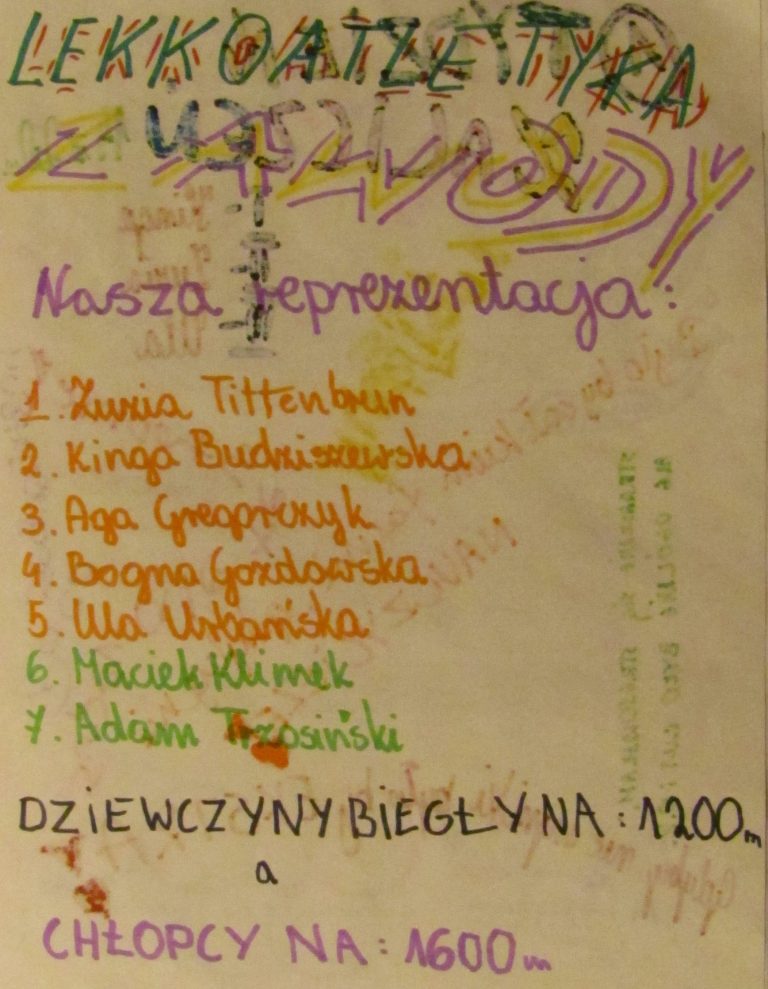 LEKKOATLETYKA
ZAWODY
Nasza reprezentacja:
1. Zuzia Tittenbrun
2. Kinga Budziszewska
3. Aga Gregorczyk
4. Bogna Gozdowska
5. Ula Urbańska
6. Maciek Klimek
7. Adam Trzosiński
DZIEWCZYNY BIEGŁY NA: 1200m
a
CHŁOPCY NA: 1600m